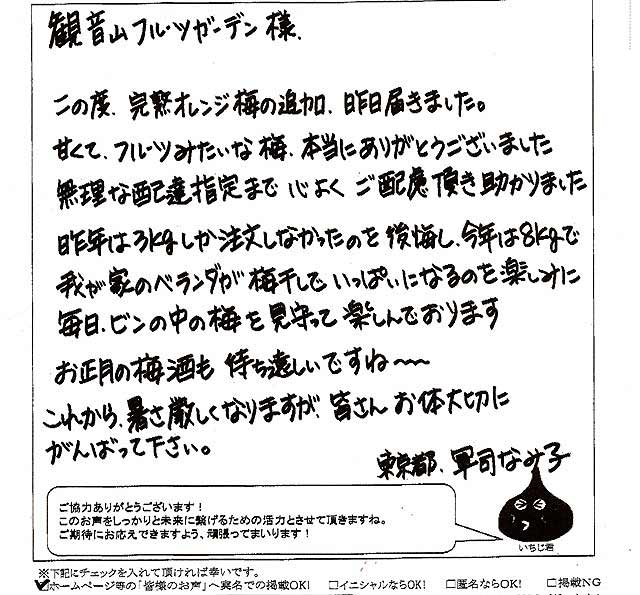 観音山フルーツガーデン 様.
この度、完熟オレンジ梅の追加、昨日届きました。
甘くて、フルーツみたいな梅、本当にありがとうございました
無理な配達指定まで 心よく ご配慮頂き助かりました
昨年は3kgしか注文しなかったのを後悔し、今年は8kgで
我が家のベランダが梅干しでいっぱいになるのを楽しみに
毎日、ビンの中の梅を見守って楽しんでおります
お正月の梅酒も待ち遠しいですね〜〜
これから、暑さ厳しくなりますが、皆さんお体大切に
がんばって下さい。
東京都、軍司なみ子
ご協力ありがとうございます！
このお声をしっかりと未来に繋げるための活力とさせて頂きますね。
ご期待にお応えできますよう、頑張ってまいります！
いちじ君
※下記にチェックを入れて頂ければ幸いです。
☑ホームページ等の「皆様のお声」へ実名での掲載OK! □イニシャルならOK! □匿名ならOK! □掲載NG